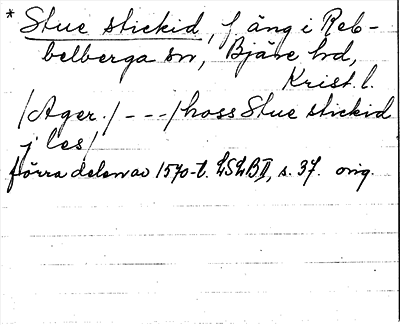 * Stue stickid, f äng i Reb-
belberga sn, Bjäre hd,
Krist. l.
/Ager./ - - - /hoss Stue stickid
j les/
förra delen av 1570-t. LSLB II, s. 37. orig.